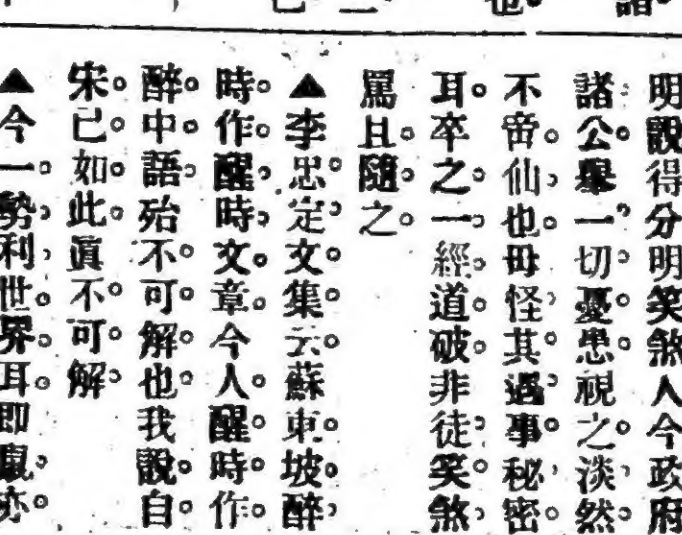 明說得分明笑煞人今政府
諸公舉一切憂患視之淡然
不啻仙也毋怪其遇事秘密
耳卒之一經道破非徒笑煞
罵且隨之
▲李忠定文集云蘇東坡醉
時作醒時文章今人醒時作
醉中語殆不可解也我說自
宋已如此眞不可解
▲今一勢利世界耳卽